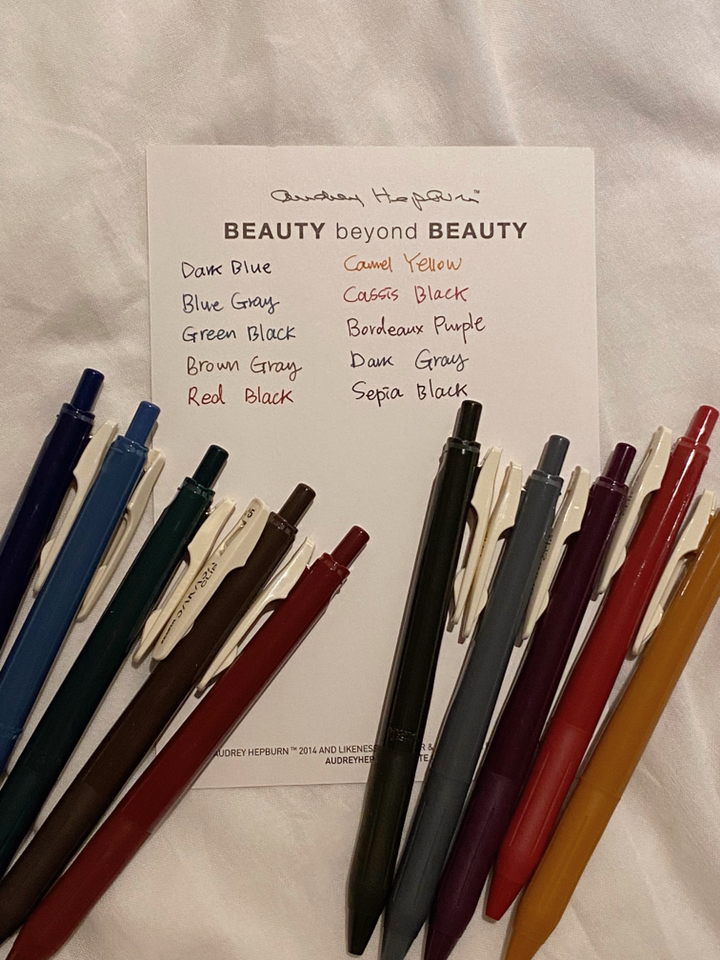 Audrey Hepburn™
BEAUTY beyond BEAUTY
Dark Blue
Blue Gray
Green Black
Brown Gray
Red Black
Camel Yellow
Cassis Black
Bordeaux Purple
Dark Gray
Sepia Black
AUDREY HEPBURN™ 2014 AND LIKENESS
AUDREYHEP
SARASA